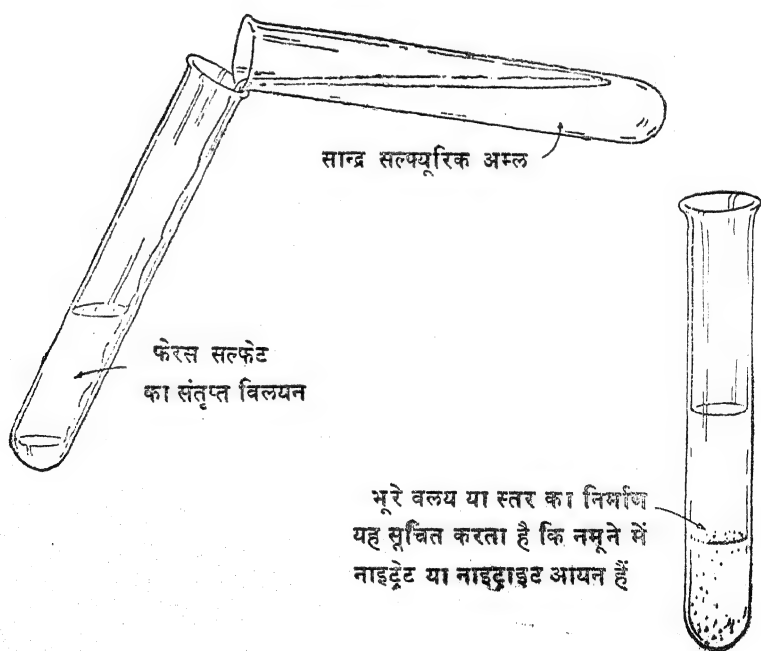 सान्द्र सल्फ्यूरिक अम्ल
फेरस सल्फेट
का संतृप्त विलयन
भूरे वलय या स्तर का निर्माण
यह सूचित करता है कि नमूने में
नाइट्रेट या नाइट्राइट आयन हैं